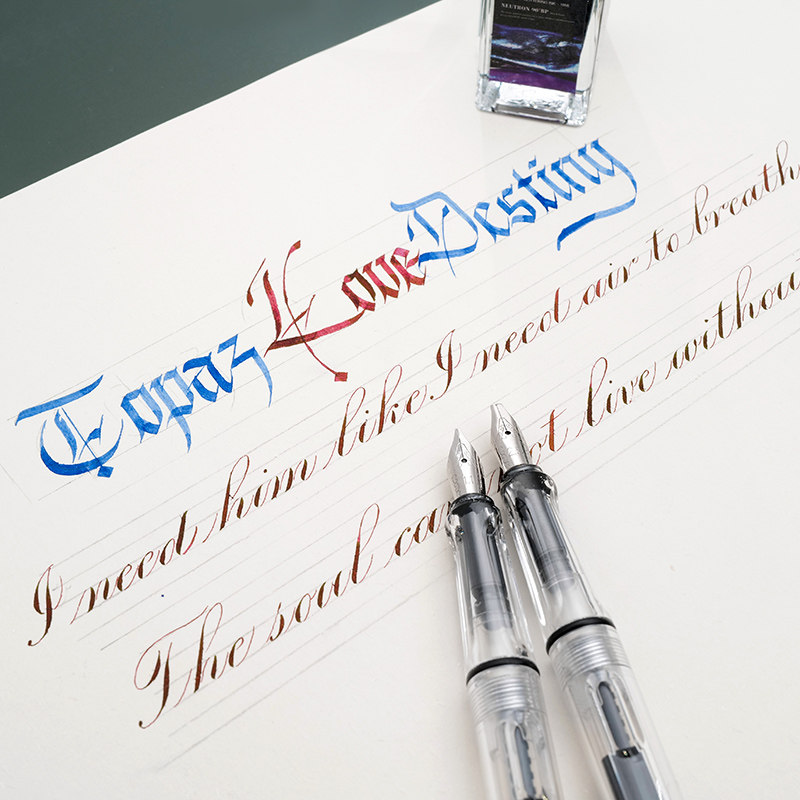 NEUTRON 90°BP
Topaz Love Destiny
I need him like I need air to breath
The soul cannot live withou